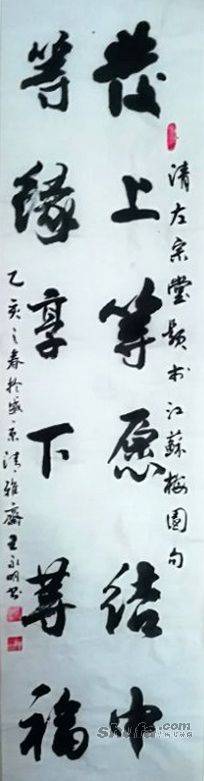 清左宗棠题於江蘇梅園句
发上等愿结中
等缘享下等福
乙亥之春於盛京清雅斋王永明书
shufa.com